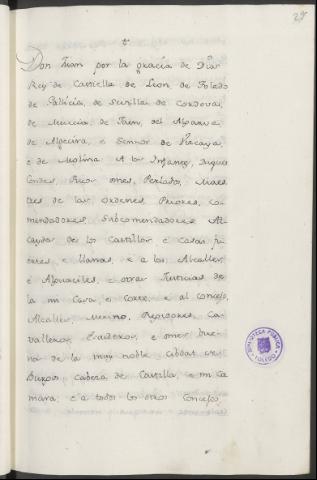 29
Don Juan por la gracia de Dios
Rey de Castiella de Leon de Toledo
de Gallicia, de Sevilla de Cordova,
de Murcia, de Jaen, del Algarve
de Algecira, e Sennor de Vizcaya,
e de Molina. A los Infantes, Duques
Condes, Ricos omes, Perlados, Maes
tres de las Ordenes Priores, Co-
mendadores, Subcomendadores Al-
caydes de los Castillos e Casas fu
ertes e llanas, e a los Alcalles
e Alguaciles, e otras Justicias de
la mi Casa e Corte, e al Concejo,
Alcalles, Merino, Regidores, Ca-
valleros, Escuderos, e omes bue
nos de la muy noble cibdat de
Burgos cabeza de Castilla, e mi Ca
mara, e a todos los otros Concejos,
BIBLIOTECA PUBLICA
TOLEDO